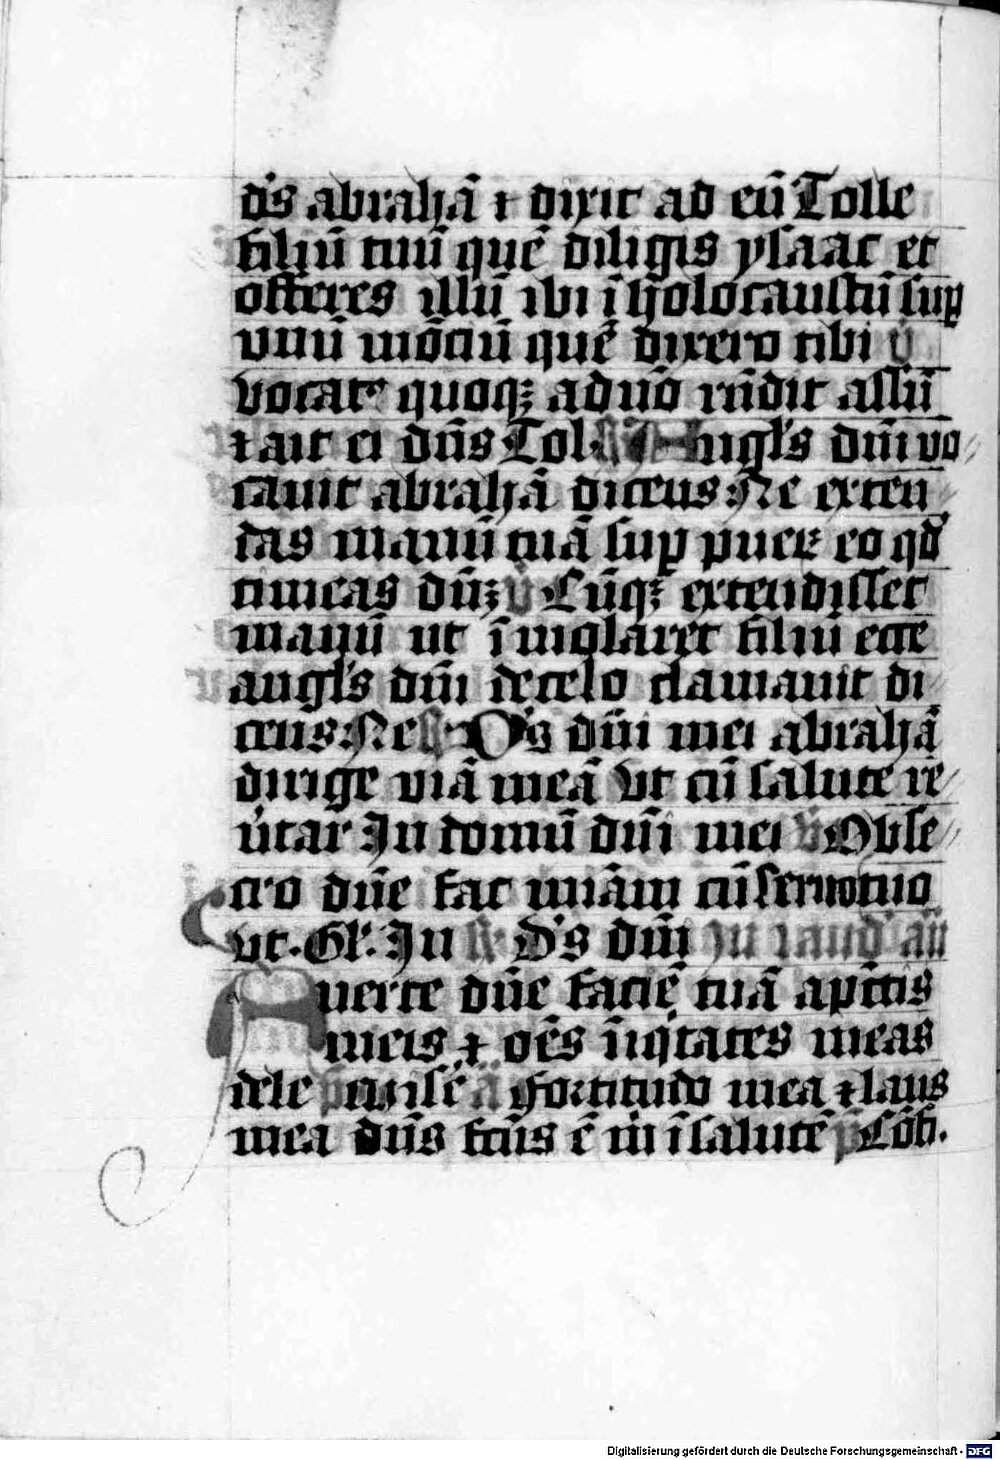 ds abrahā ⁊ dixit ad eū Tolle
filiū tuū quē diligis ysaac et
offeres illū ibi ī holocaustū suꝑ
vnū mōtiū quē dixero tibi v̄
vocatꝰ quoqꝫ a dn̄o rn̄dit assū
⁊ ait ei dn̄s Tol R̄ Angl's dn̄i vo
cauit abrahā dicens Ne exten
das manū tuā suꝑ pueꝝ eo qd̓
timeas dn̄ꝫ v̄ Cūqꝫ extendisset
manū ut īmolaret filiū ecce
angl's dn̄i de celo clamauit di
cens Ne R̄ D's dn̄i mei abrahā
dirige viā meā vt cū salute re
u̓tar In domū dn̄i mei v̄ Obse
cro dn̄e fac mi̅am cū seruo tuo
vt. Gl'. In R̄ D's dn̄i In laud' añ
Auerte dn̄e faciē tuā a pctīs
meis ⁊ oēs īiqͥtates meas
dele añ Fortitudo mea ⁊ laus
mea dn̄s fc̄us ē m̄ ī salutē p̄ Cōfi.
Digitalisierung gefördert durch die Deutsche Forschungsgemeinschaft - DFG